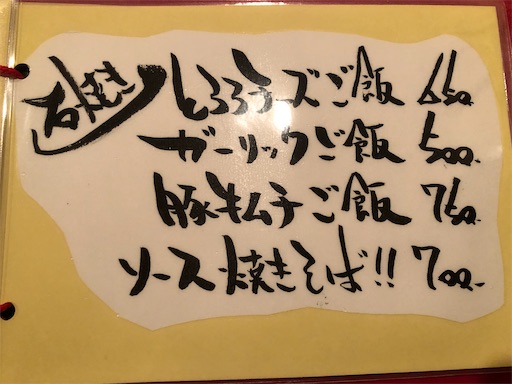 石焼き
とろろチーズご飯 650-
ガーリックご飯 500-
豚キムチご飯 750-
ソース焼きそば!! 700-